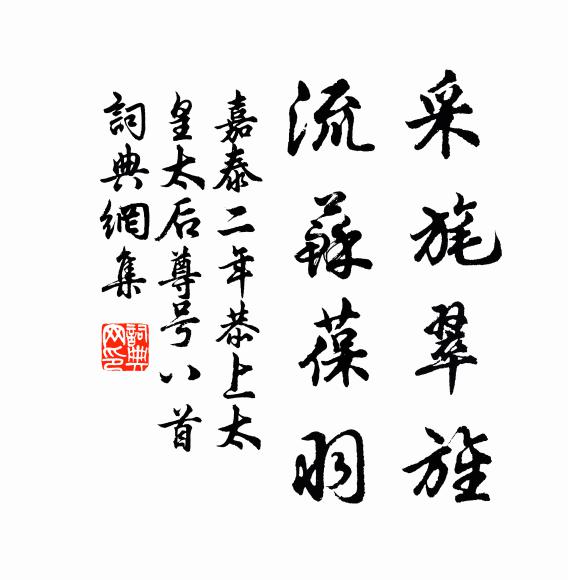 采旄翠旌
流蘇葆羽
嘉泰二年恭上太
皇太后尊号八首
詞典網集
詞典网印